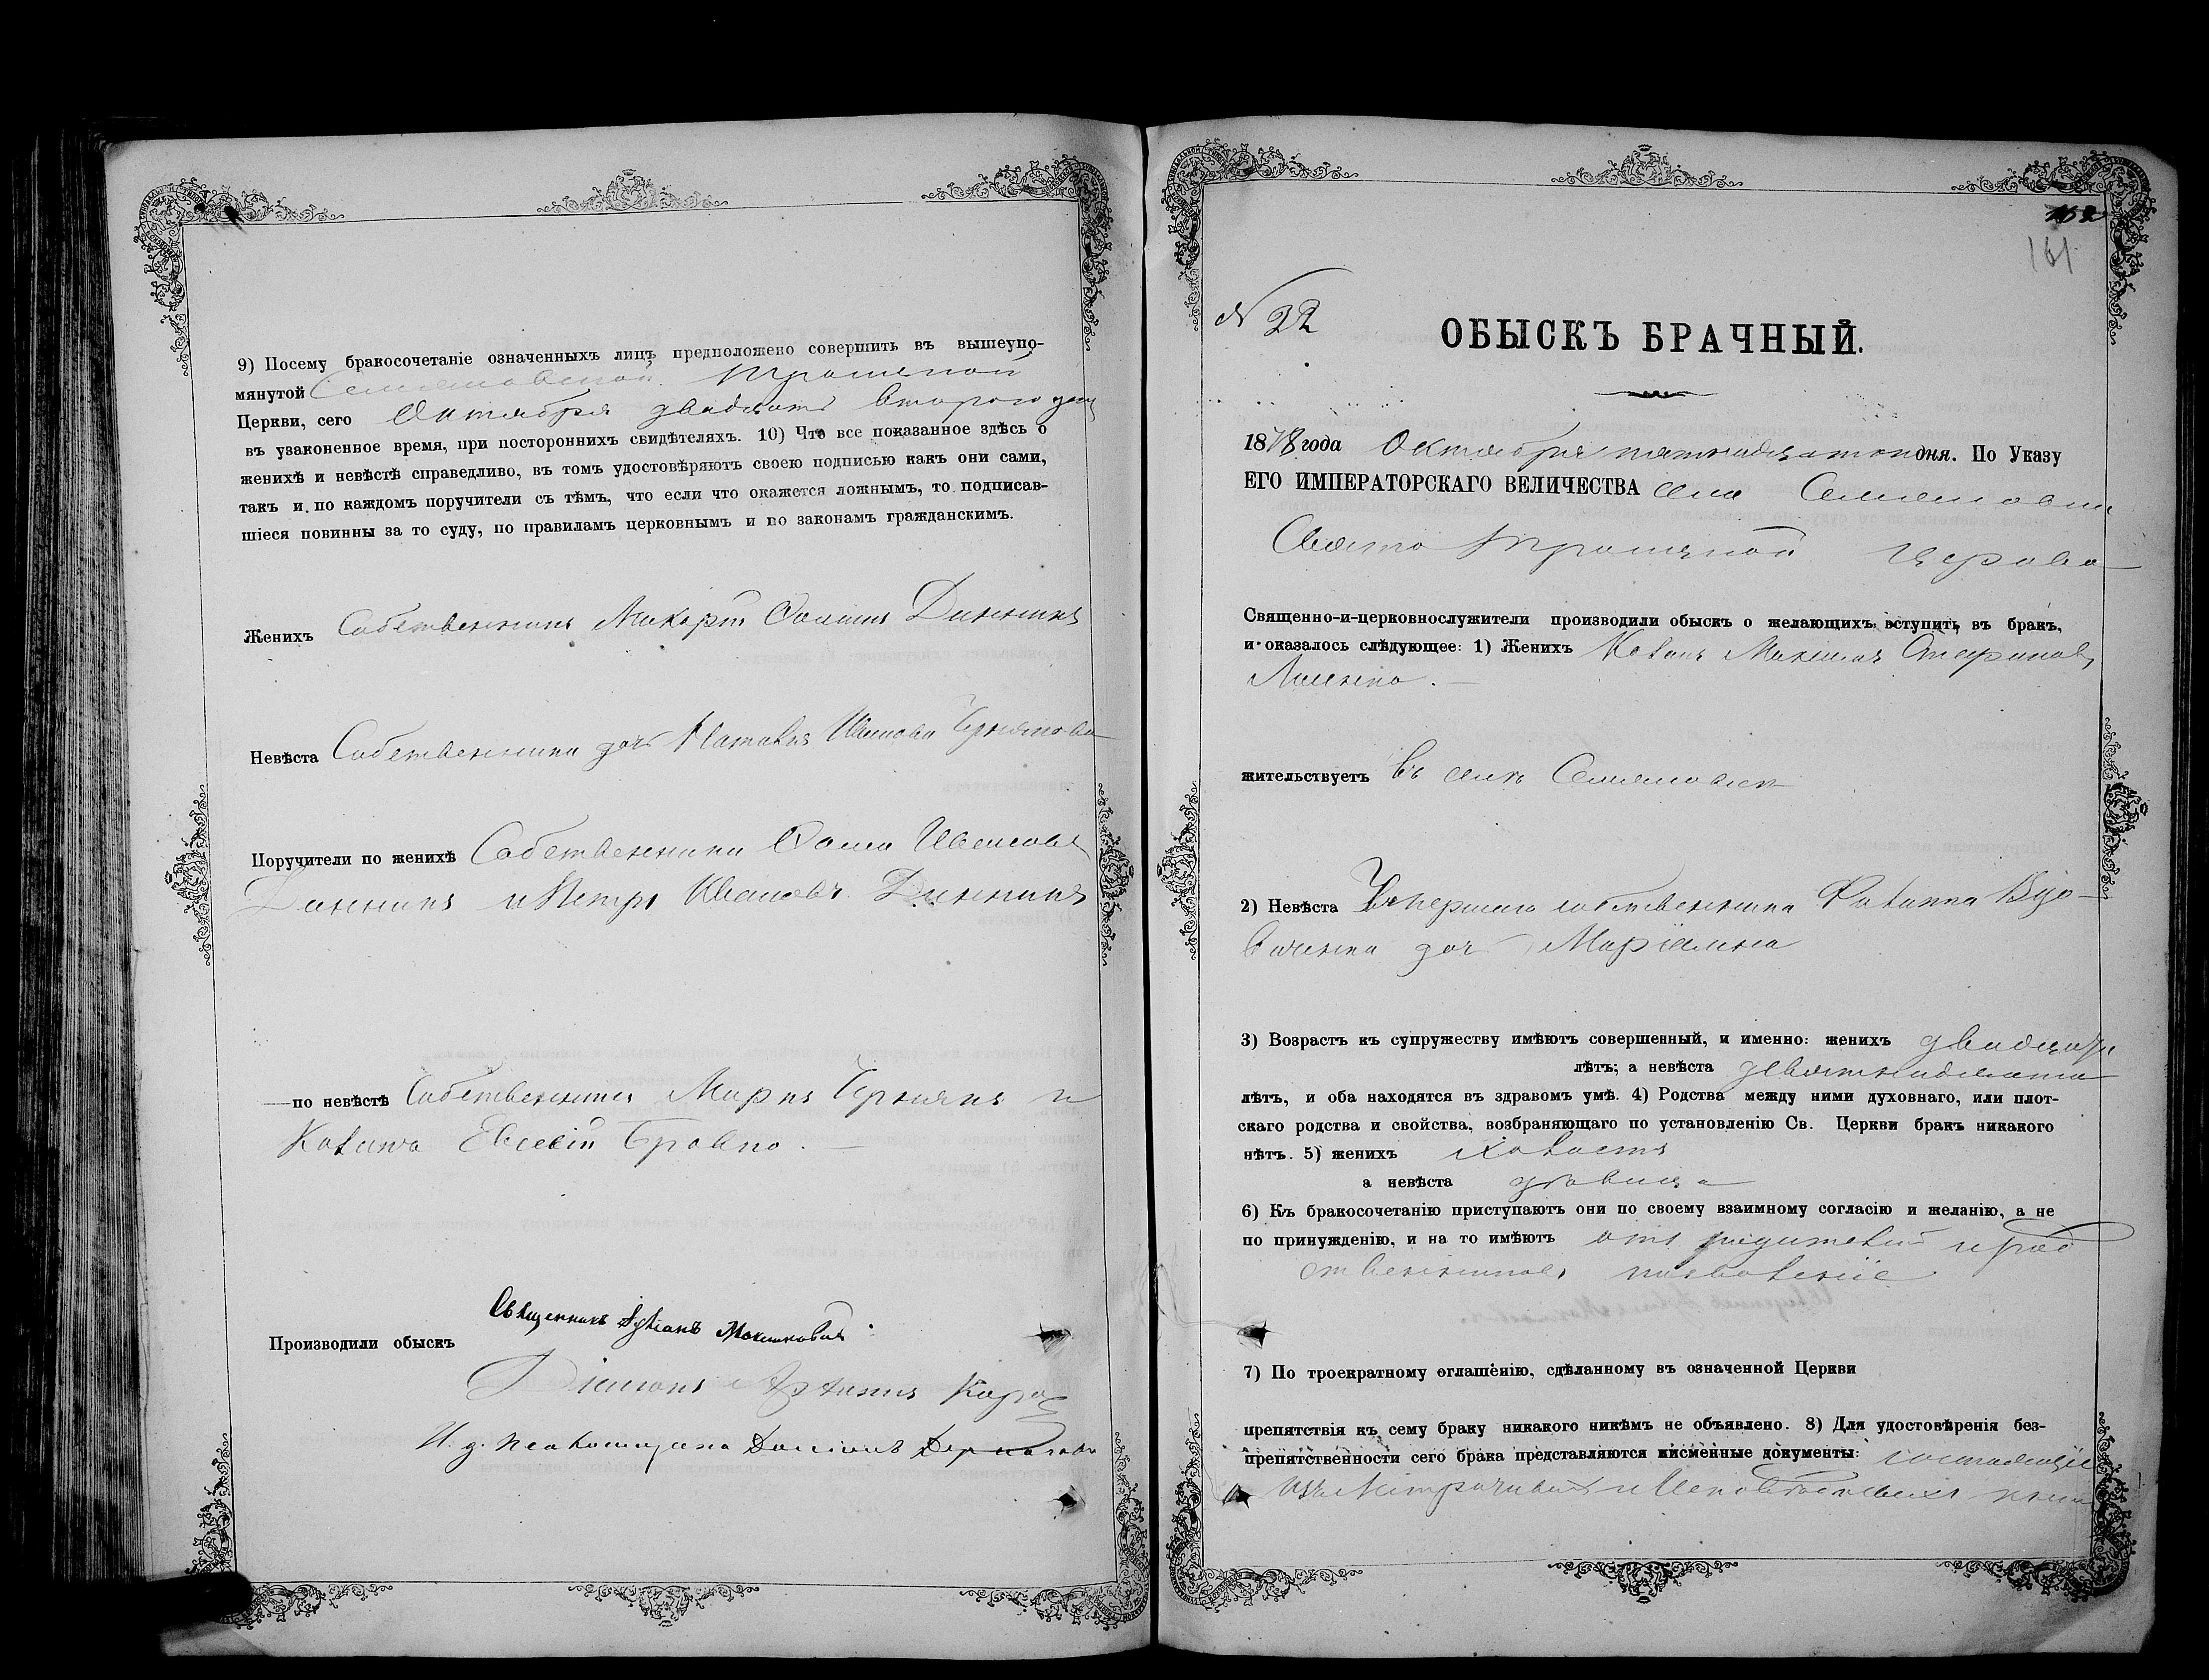 9) Посему бракосочетаніе означенныхъ лицъ предположено совершить въ вышеупо-
мянутой Семяновской Троицкой
Церкви, сего Октября двадцать втораго дня
въ узаконенное время, при постороннихъ свидѣтеляхъ. 10) Что все показанное здѣсь о
женихѣ и невѣстѣ справедливо, въ томъ удостовѣряютъ своею подписью какъ они сами,
такъ и по каждомъ поручители съ тѣмъ, что если что окажется ложнымъ, то подписав-
шіеся повинны за то суду, по правиламъ церковнымъ и по законамъ гражданскимъ.
Женихъ Собственникъ Макарій Ѳоминъ
Невѣста Собственника дочь Наталія Иванова
Поручители по женихѣ Собственники Ѳома Ивановъ
и Петръ Ивановъ
—по невѣстѣ Собственникъ Марко Чернякъ и
Козакъ Евсевій Бровко.
Производили обыскъ Священникъ Іуліанъ
Діаконъ
И. д. псаломщика
161
№ 22
ОБЫСКЪ БРАЧНЫЙ.
1878 года Октября пятнадцатого дня. По Указу
ЕГО ИМПЕРАТОРСКАГО ВЕЛИЧЕСТВА села Семяновки
Свято Троицкой церкви
Священно-и-церковнослужители производили обыскъ о желающихъ вступить въ бракъ,
и оказалось слѣдующее: 1) Женихъ Козакъ Михаилъ
жительствуетъ въ селѣ Семяновкѣ
2) Невѣста Умершаго собственника Филиппа
дочь Маріамна
3) Возрастъ къ супружеству имѣютъ совершенный, и именно: женихъ двадцати
лѣтъ; а невѣста девятнадцати
лѣтъ, и оба находятся въ здравомъ умѣ. 4) Родства между ними духовнаго, или плот-
скаго родства и свойства, возбраняющаго по установленію Св. Церкви бракъ никакого
нѣтъ. 5) женихъ холостъ
а невѣста дѣвица
6) Къ бракосочетанію приступаютъ они по своему взаимному согласію и желанію, а не
по принужденію, и на то имѣютъ отъ родителей и род
ственниковъ позволеніе
7) По троекратному оглашенію, сдѣланному въ означенной Церкви
препятствія къ сему браку никакого никѣмъ не объявлено. 8) Для удостовѣренія без-
препятственности сего брака представляются письменные документы: состоящіе
изъ Метрическихъ и Исповѣдныхъ книгъ